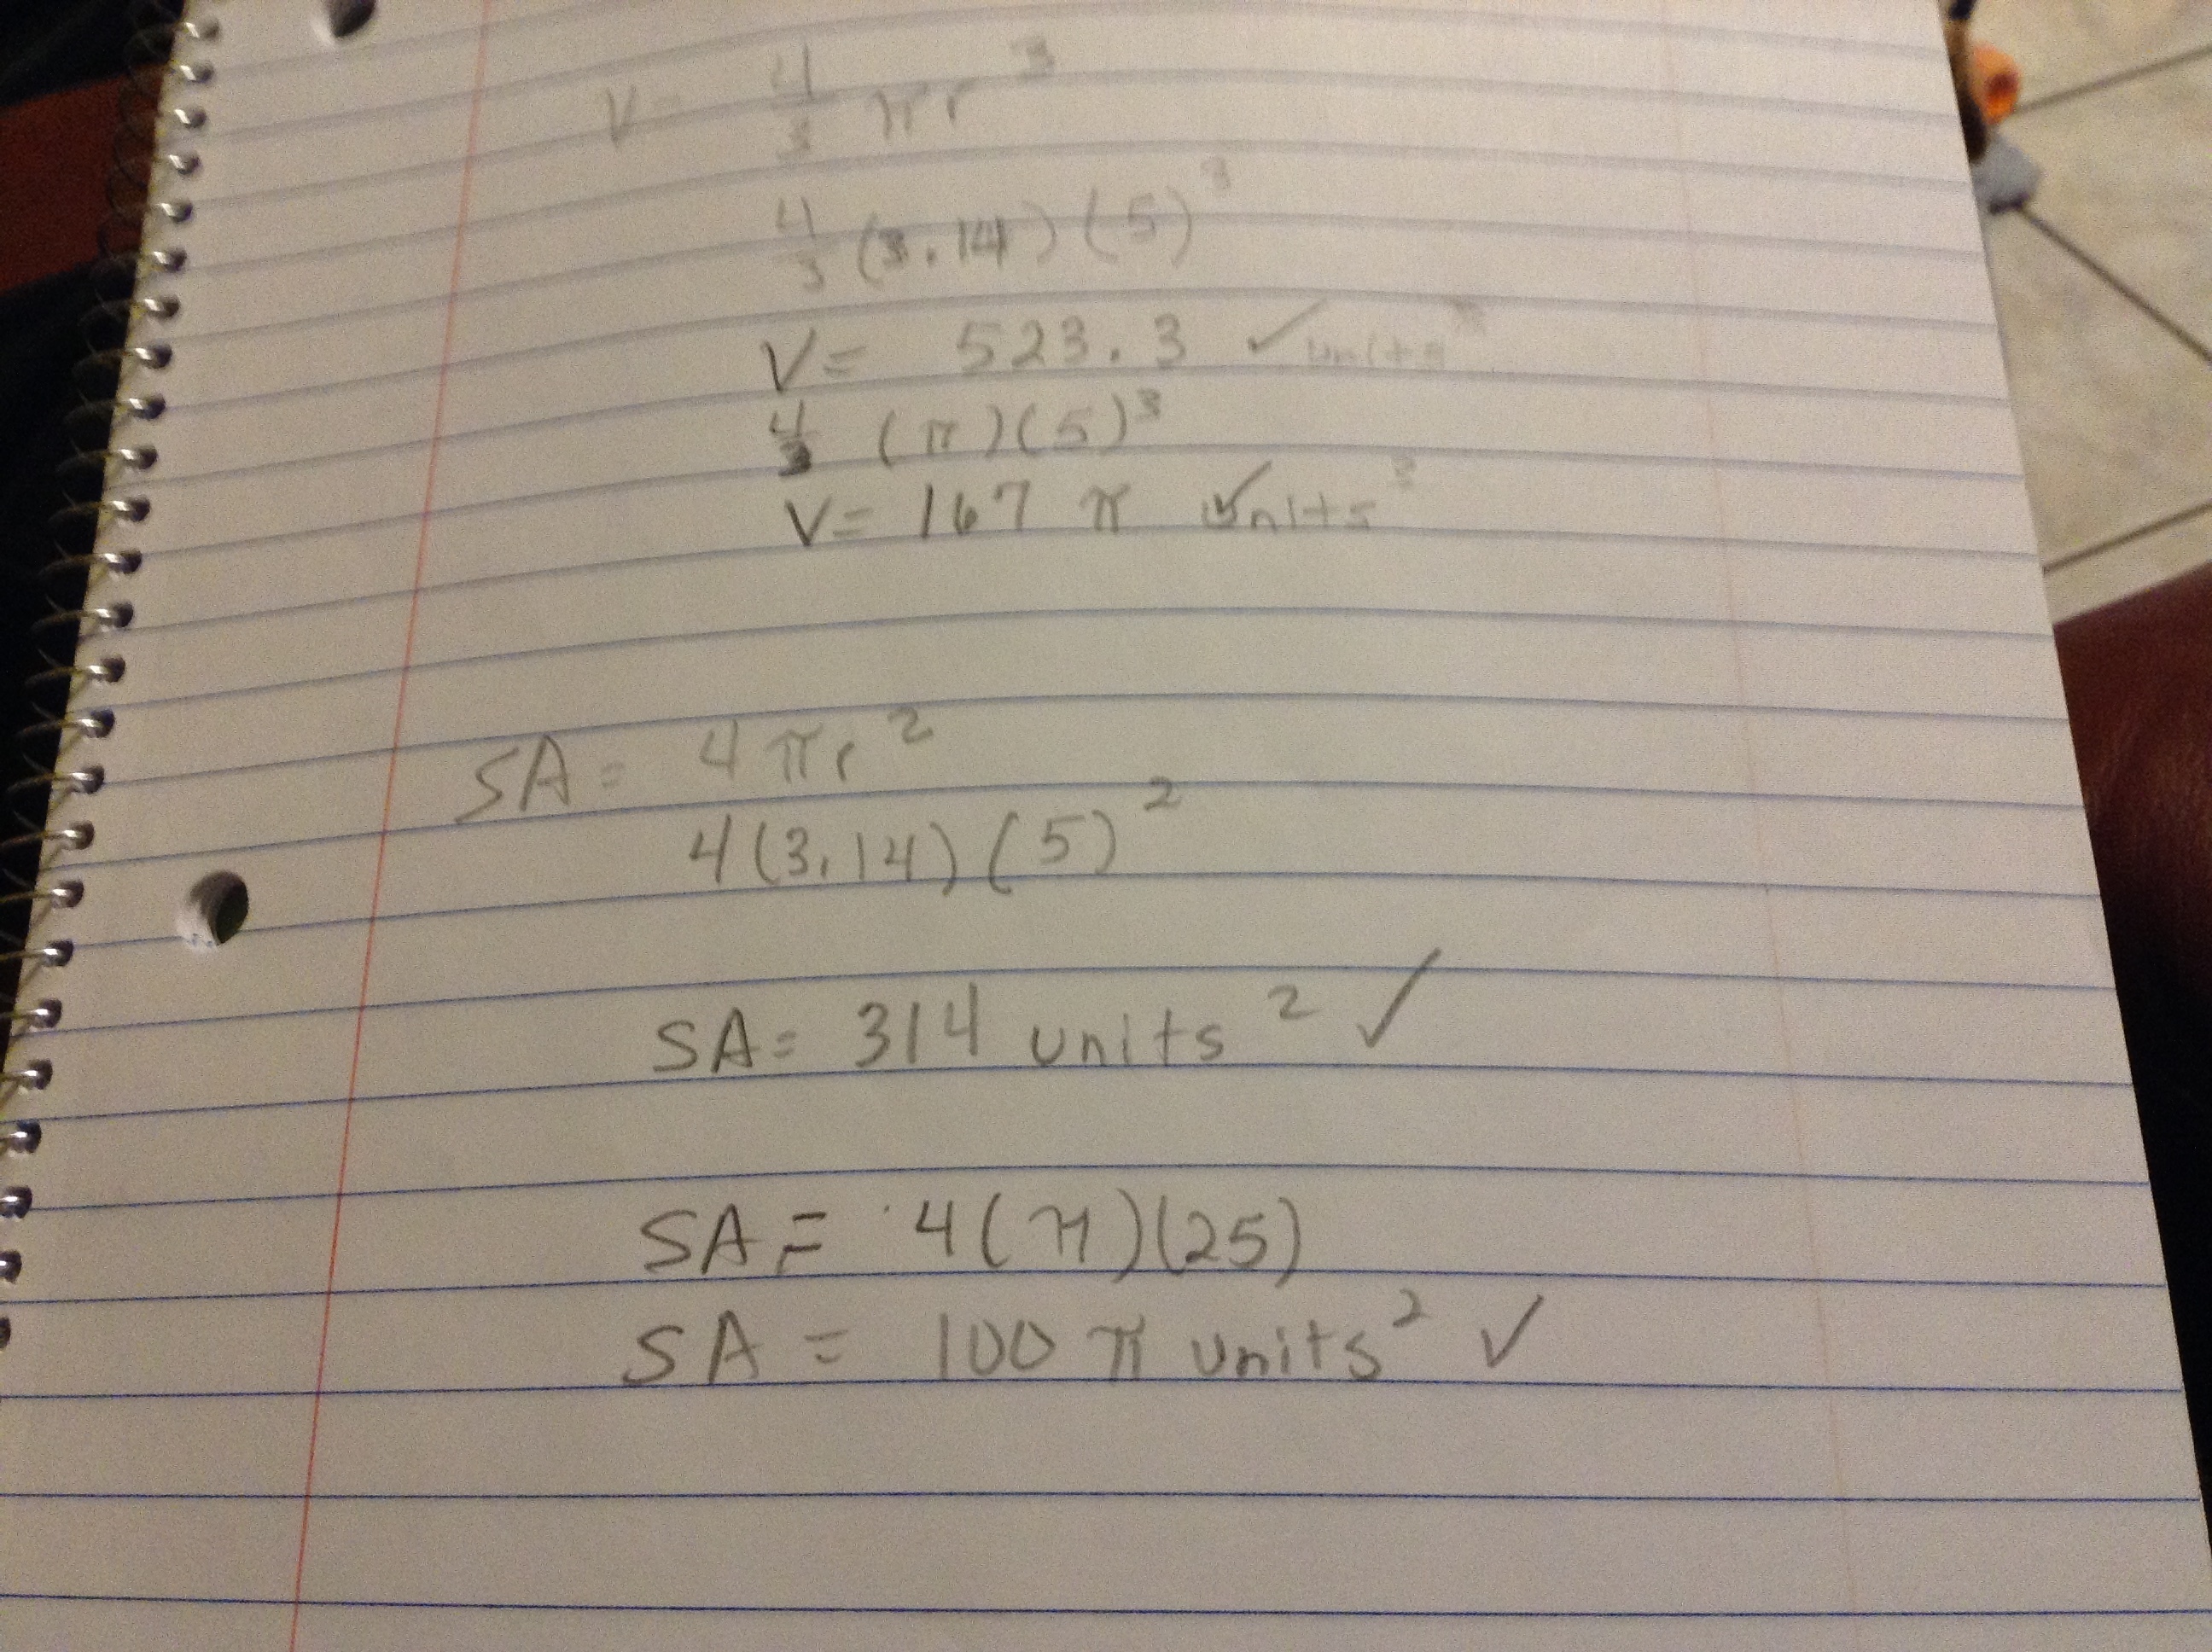 V = 4/3 πr³
4/3 (3.14) (5)³
V = 523.3 ✓ units³
4/3 (π)(5)³
V = 167 π units³ ✓
SA = 4πr²
4(3.14)(5)²
SA = 314 units² ✓
SA = 4(π)(25)
SA = 100 π units² ✓